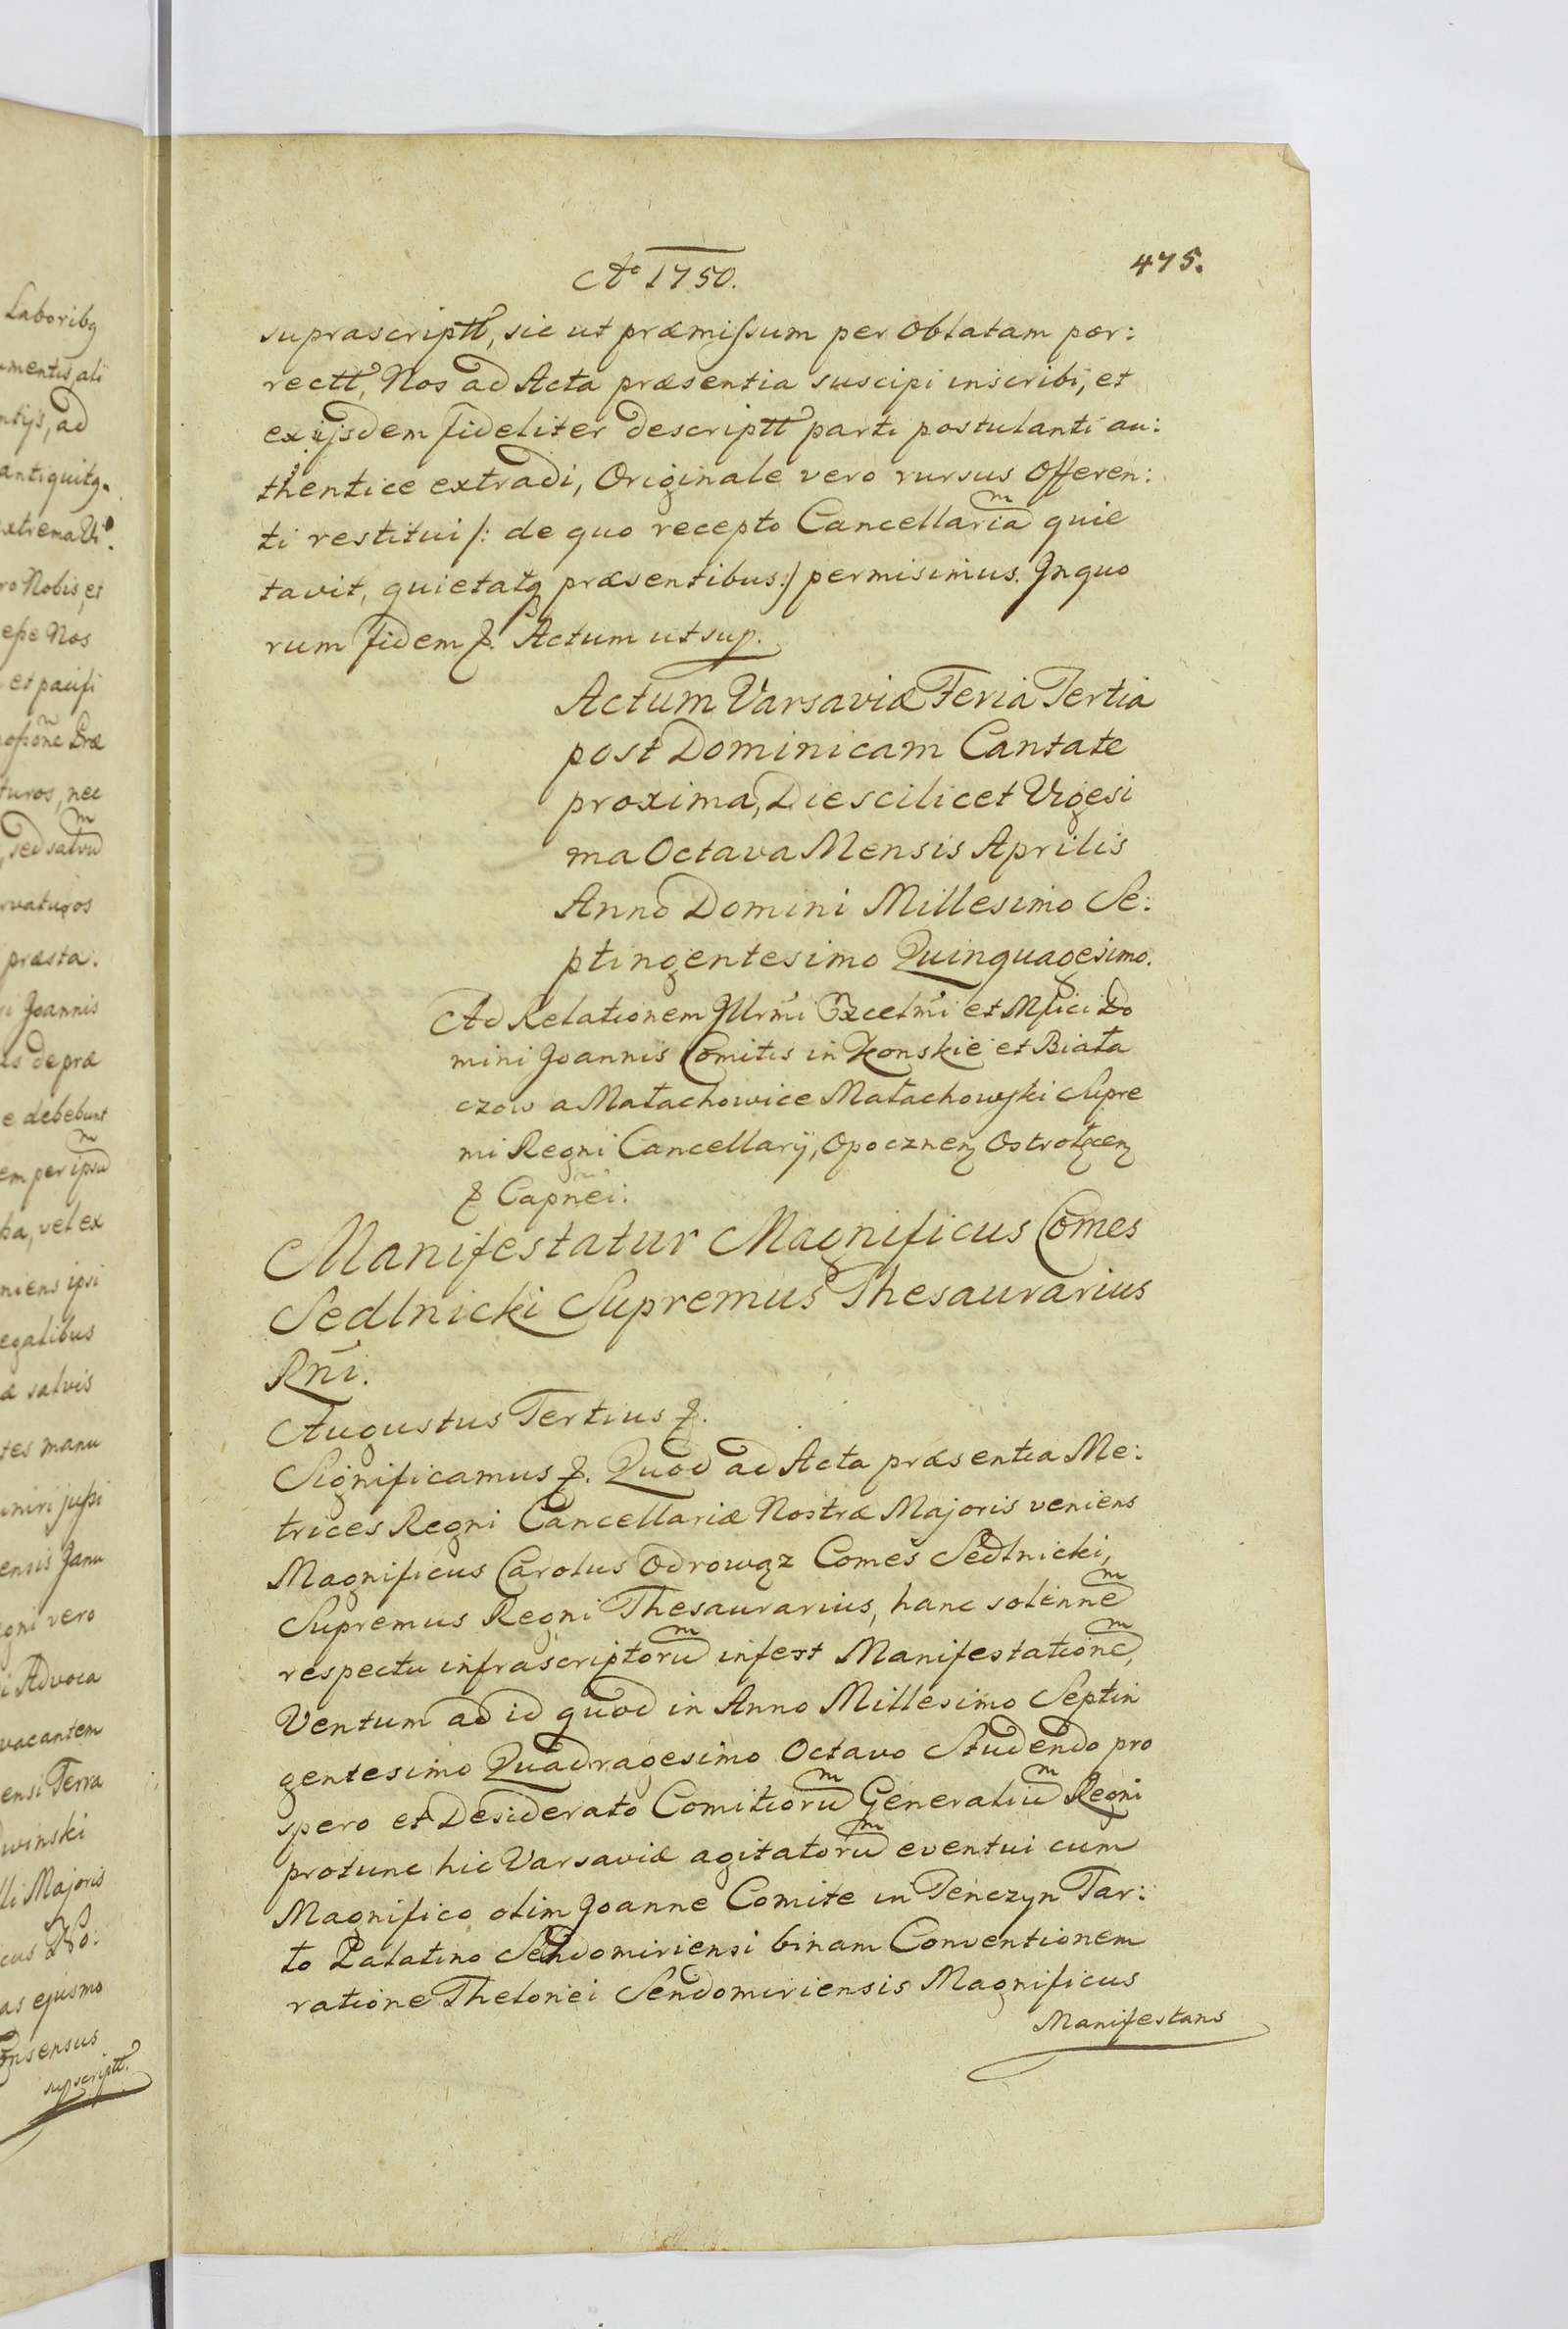 Laboribq
mentis, ali
ntijs, ad
antiquitq.
xtrema
ro Nobis, et
epe Nos
et pacifi
Præ
turos, nec
, sed salvu͠m
rvaturos
præsta.
Joannis
us de præ
e debebunt
em per ipsu͠m
ba, vel ex
niens ipsi
egalibus
æ salvis
tes manu
uniri jussi
ensis Janu
gni vero
i Advoca
vacantem
ensi Terra
winski
lli Majoris
icus
as ejusmo
onsensus
supscriptt.
Ao 1750.
475.
suprascriptt, sic ut præmissum per Oblatam por:
rectt, Nos ad Acta præsentia suscipi inscribi, et
ex ijsdem fideliter descriptt parti postulanti au:
thentice extradi, Originale vero rursus Offeren:
ti restitui /: de quo recepto Cancellariam quie
tavit, quietatq præsentibus :/ permisimus. In quo
rum fidem &. Actum ut sup.
Actum Varsaviæ Feria Tertia
post Dominicam Cantate
proxima, Die scilicet Vigesi
ma Octava Mensis Aprilis
Anno Domini Millesimo Se:
ptingentesimo Quinquagesimo.
Ad Relationem Jllrmi Excelmi et Mfici Do
mini Joannis Comitis in Konskie et Biała
czow a Małachowice Małachowski Supre
mi Regni Cancellarij, Opocznen Ostrołęcen
& Capnei:
Manifestatur Magnificus Comes
Sedlnicki Supremus Thesaurarius
Rni.
Augustus Tertius &.
Significamus &. Quod ad Acta præsentia Me:
trices Regni Cancellariæ Nostræ Majoris veniens
Magnificus Carolus Odrowąz Comes Sedlnicki,
Supremus Regni Thesaurarius, hanc solennem
respectu infrascriptorum infert Manifestationem,
Ventum ad id quod in Anno Millesimo Septin
gentesimo Quadragesimo Octavo Studendo pro
spero et Desiderato Comitiorum Generalium Regni
protunc hic Varsaviæ agitatorum eventui cum
Magnifico olim Joanne Comite in Tenczyn Tar:
ło Palatino Sendomiriensi binam Conventionem
ratione Thelonei Sendomiriensis Magnificus
Manifestans